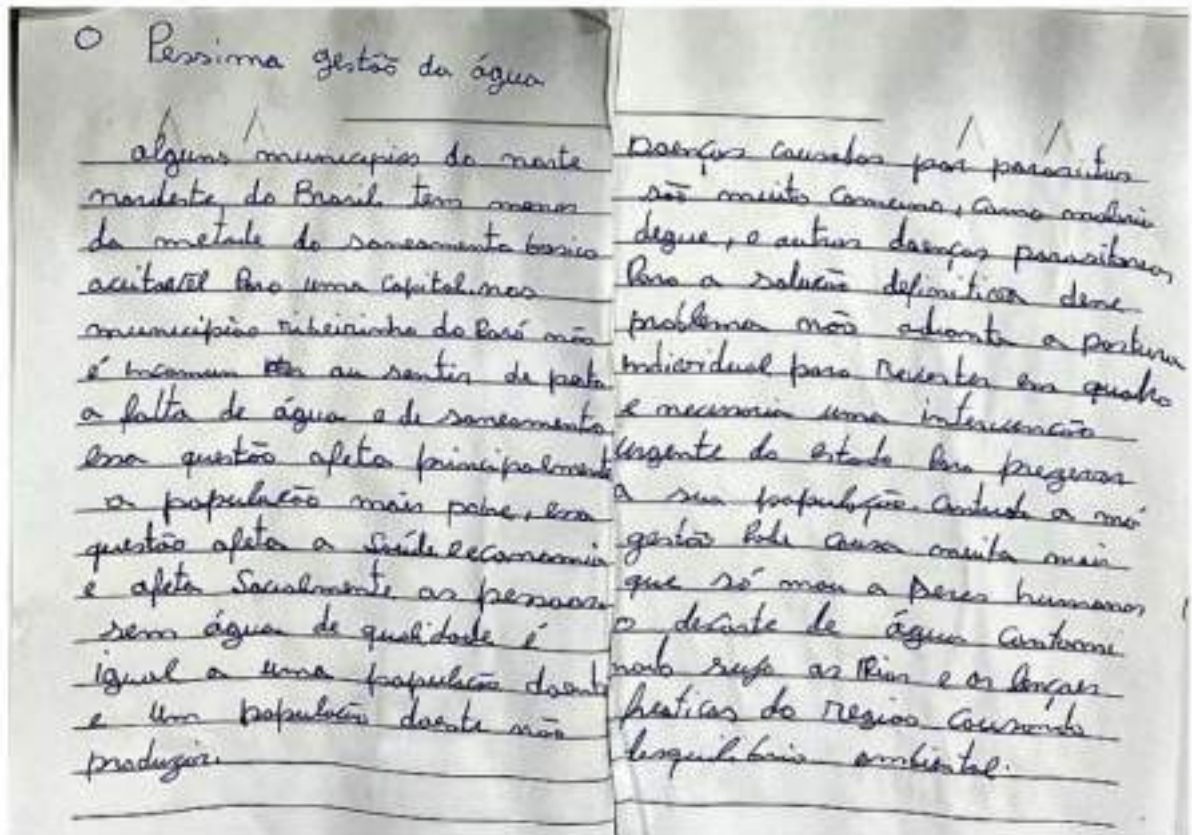 O Pessima gestão da água
alguns municipios do norte
nordeste do Brasil tem menos
da metade do saneamento basico
aceitavél Para uma capital. nos
municipios ribeirinho do Pará não
é incomum ao sentir de perto
a falta de água e de saneamento
essa questão afeta principalmente
a população mais pobre, essa
questão afeta a Saúde economia
e afeta Socialmente as pessoas.
sem água de qualidade é
igual a uma população doente
e um população doente não
produzir.
Doenças causadas por parasitas
são muito comuns, como malaria
degue, e outras doenças parasitarias,
Para a solução definitiva dese
problema não adianta a postura
individual para reverter em quadro
e necessaria uma intervenção
urgente do estado Para prezervar
a sua população. Contudo a má
gestão Pode causa muita mais
que só mau a seres humanos,
o descate de água contami
nado suja os Rios e os lençaes
freaticas do regiao causando
desquilibrio ambiental.